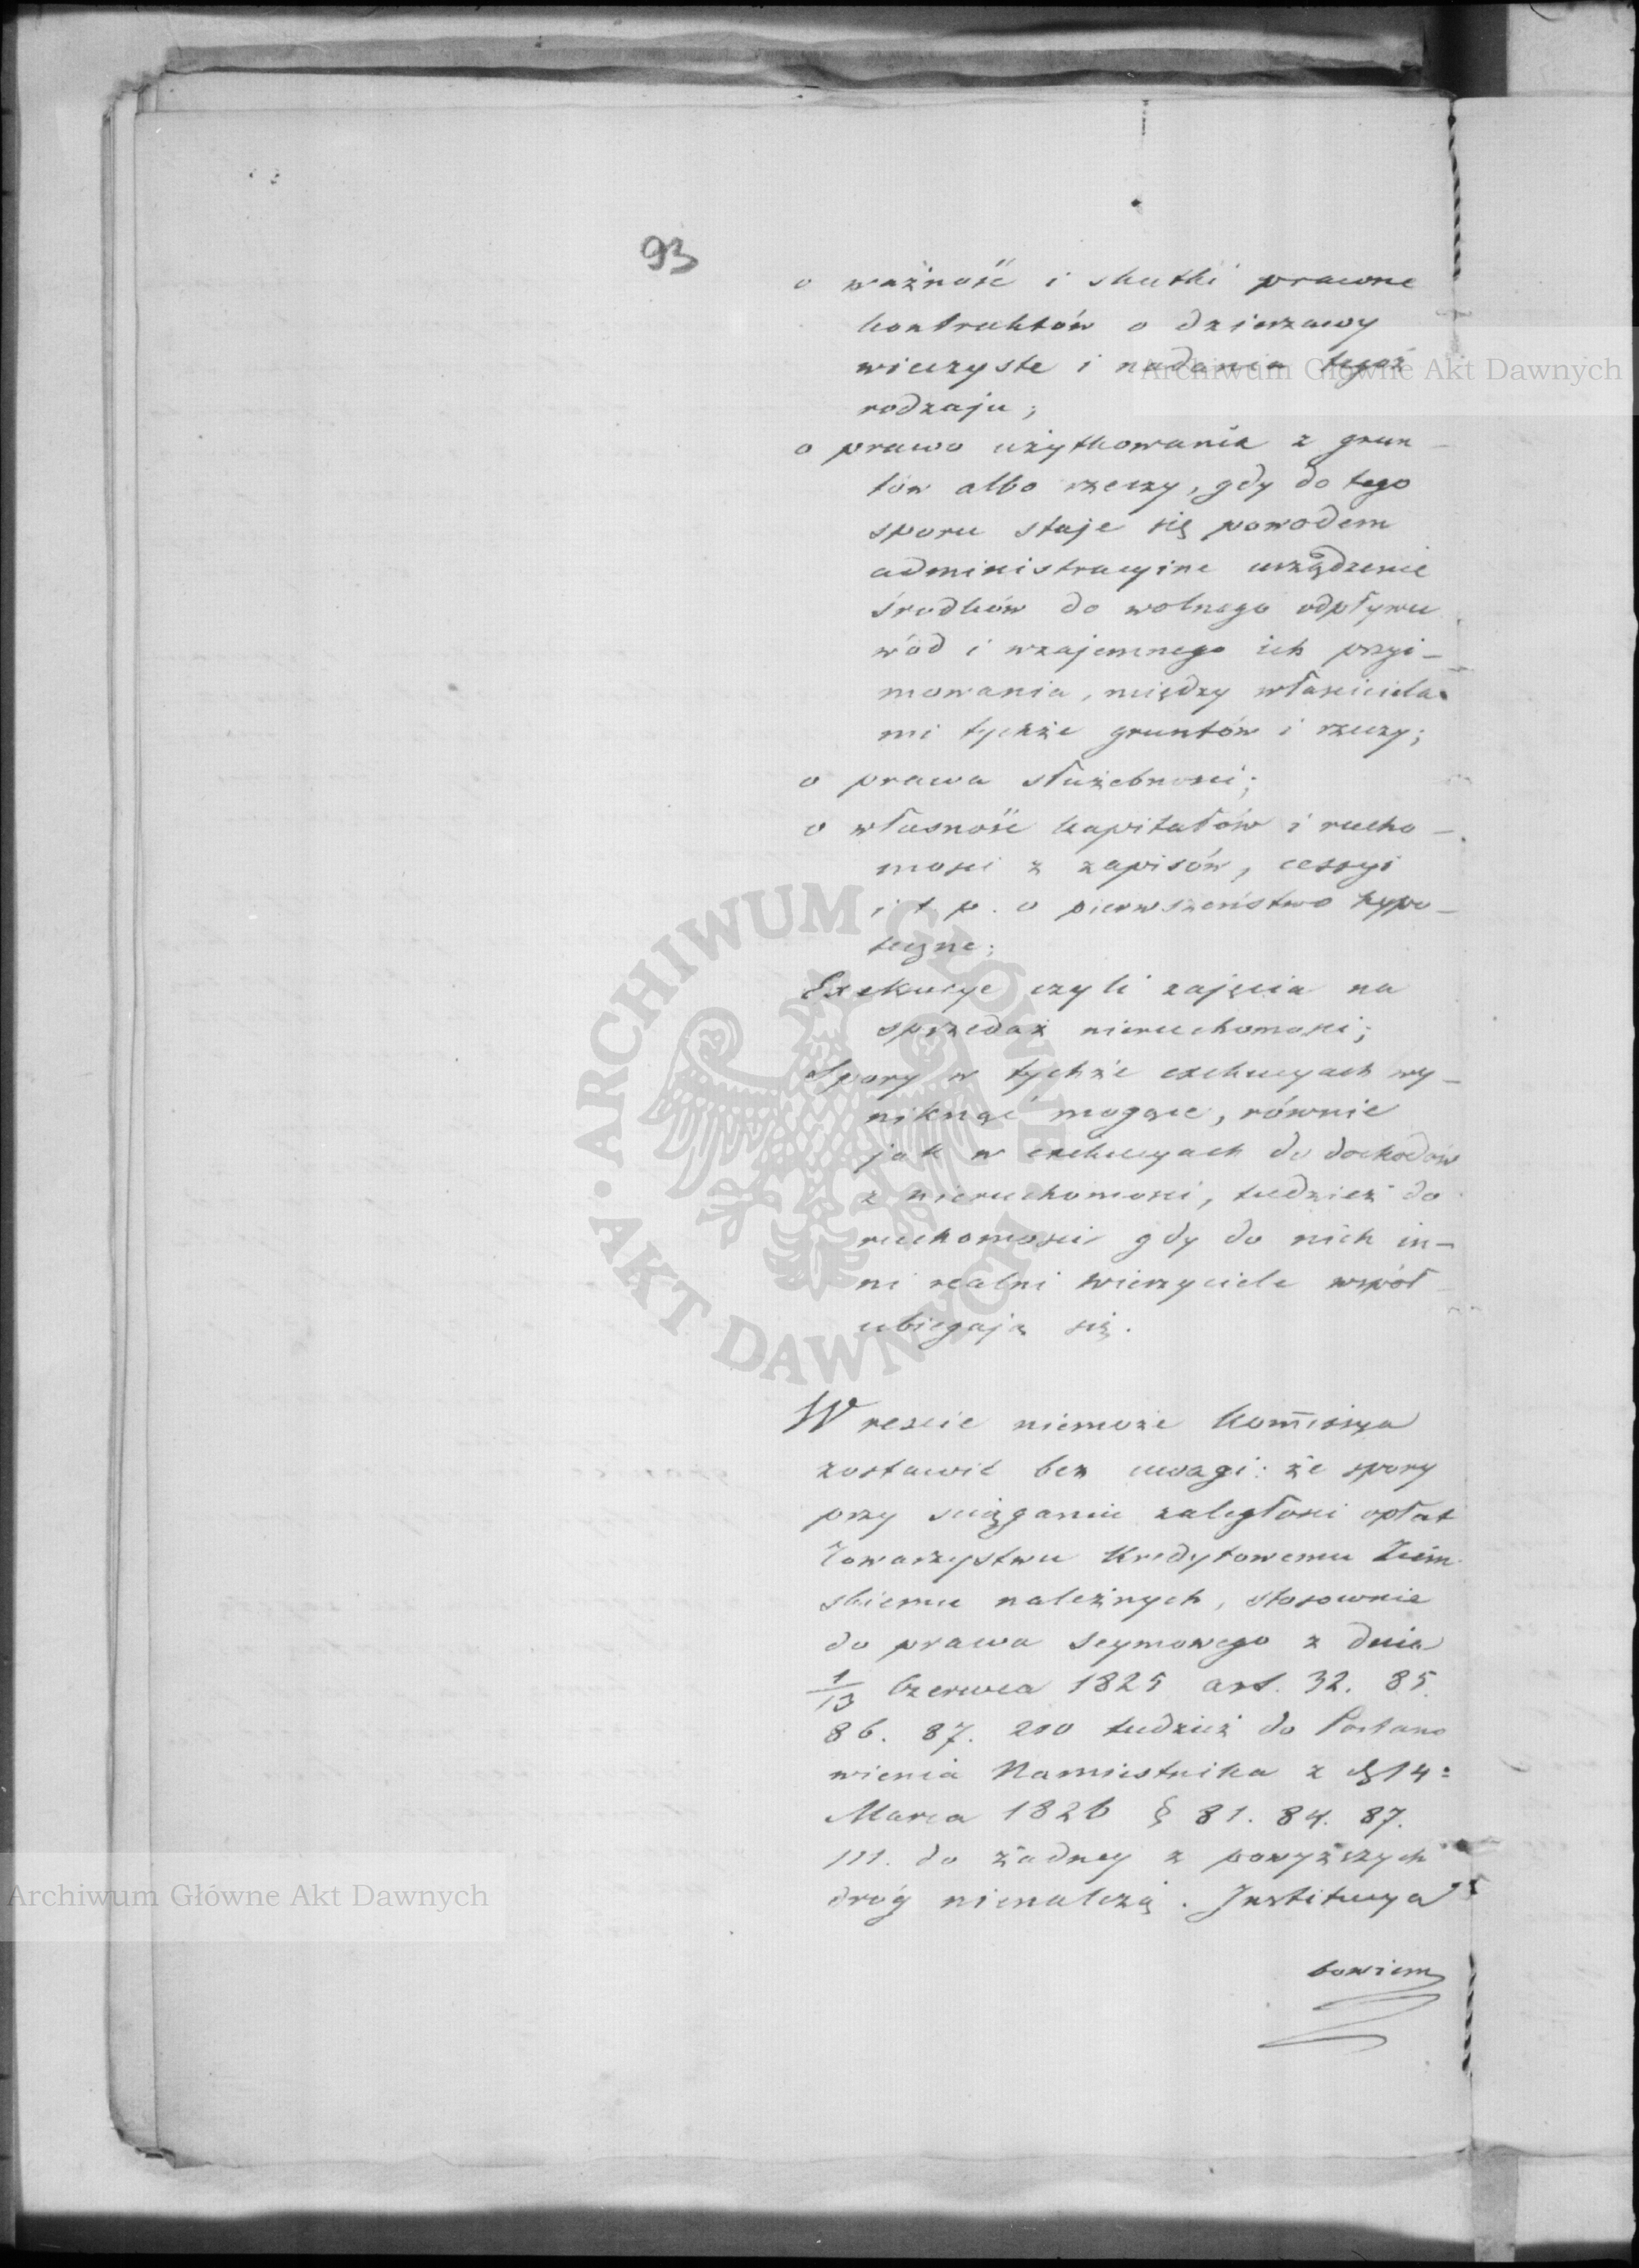 93
o ważność i skutki prawne
kontraktów o dzierzawy
wieczyste i nadania tegoż
rodzaju;
o prawo użytkowania z grun-
tów albo rzeczy, gdy do tego
sporu staje się powodem
administracyine urządzenie
środków do wolnego odpływu
wód i wzajemnego ich przyi-
mowania, między właściciela-
mi tychże gruntów i rzeczy;
o prawa służebności;
o własność kapitałów i rucho-
mości z zapisów, cessyi
i t. p. o pierwszeństwo hypo-
teczne;
Exekucye czyli zajęcia na
sprzedaż nieruchomości;
Spory w tychże exekucyach wy-
niknąć mogące, równie
jak w exekucyach do dochodów
z nieruchomości, tudzież do
ruchomości gdy do nich in-
ni realni wierzyciele współ
ubiegają się.
W reście niemoże Kom̅issya
zostawić bez uwagi: że spory
przy ściąganiu zaległości opłat
Towarzystwu Kredytowemu Ziem
skiemu należnych, stosownie
do prawa Seymowego z dnia
1/13 Czerwca 1825 art. 32. 85.
86. 87. 210 tudzież do Postano
wienia Namiestnika z d. 14
Marca 1826 § 81. 84. 87.
111. do żadney z powyższych
dróg nienależą. Instytucya
bowiem
Archiwum Główne Akt Dawnych
Archiwum Główne Akt Dawnych
ARCHIWUM GŁÓWNE · AKT DAWNYCH ·